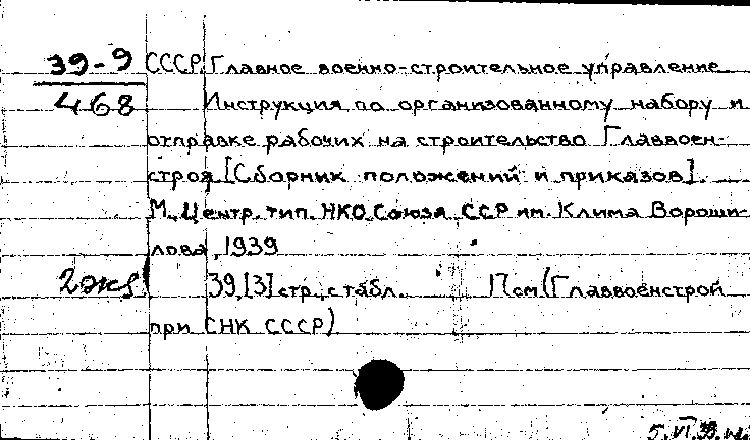 39-9 СССР. Главное военно-строительное управление
468 Инструкция по организованному набору и
отправке рабочих на строительство Главвоен-
строя [Сборник положений и приказов].
М., Центр. тип. НКО Союза ССР им. Клима Вороши-
лова, 1939
2 экз 39, [3] стр., с табл. 17 см (Главвоенстрой
при СНК СССР)
5.VI.39.